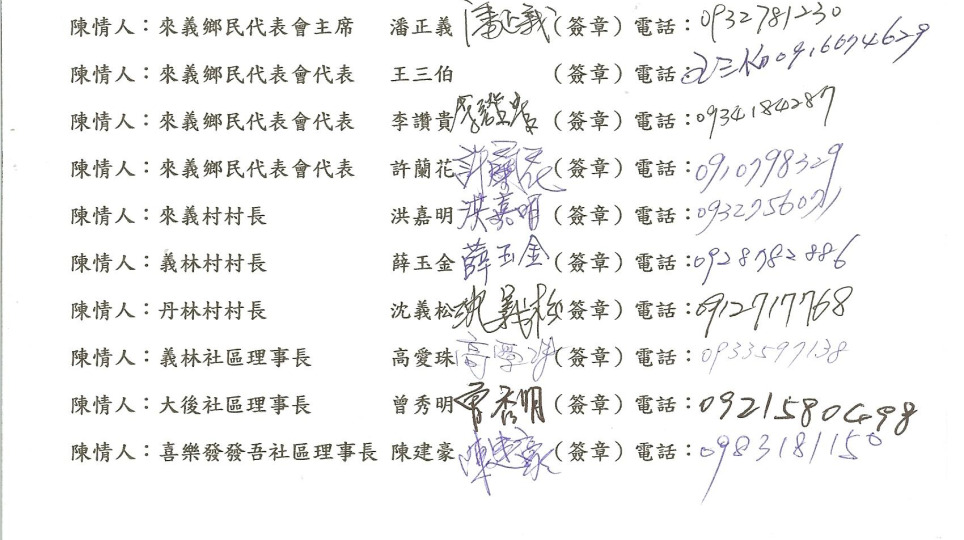 陳情人：來義鄉民代表會主席 潘正義 潘正義（簽章）電話：0932781230
陳情人：來義鄉民代表會代表 王三伯 （簽章）電話：王三伯0916674629
陳情人：來義鄉民代表會代表 李讚貴 （簽章）電話：0934184287
陳情人：來義鄉民代表會代表 許蘭花 許蘭花（簽章）電話：0910798329
陳情人：來義村村長 洪嘉明 洪嘉明（簽章）電話：
陳情人：義林村村長 薛玉金 薛玉金（簽章）電話：0928782886
陳情人：丹林村村長 沈義松 沈義松（簽章）電話：0912717768
陳情人：義林社區理事長 高愛珠 高愛珠（簽章）電話：0933597138
陳情人：大後社區理事長 曾秀明 曾秀明（簽章）電話：0921580498
陳情人：喜樂發發吾社區理事長 陳建豪 陳建豪（簽章）電話：0983181150